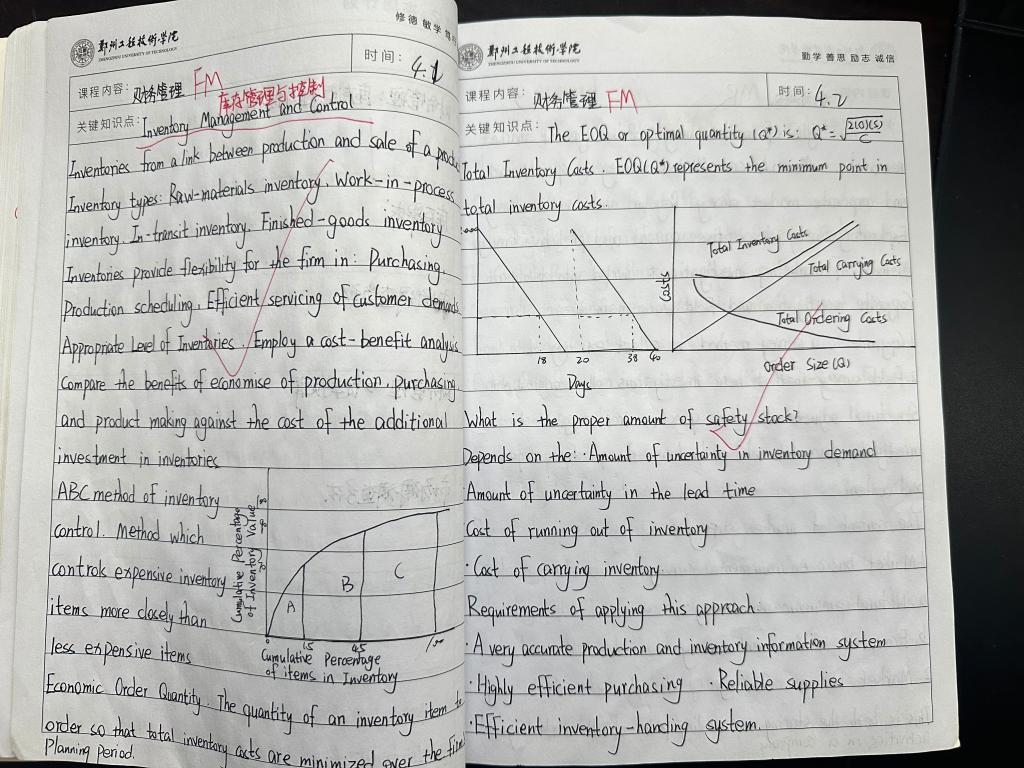 鄭州工程技術學院
ZHENGZHOU UNIVERSITY OF TECHNOLOGY
修德 敏学
课程内容: 财务管理 FM
时间: 4.2
库存管理与控制
关键知识点: Inventory Management and Control
Inventories from a link between production and sale of a produ
Inventory types: Raw-materials inventory, Work-in-process
inventory. In-transit inventory. Finished-goods inventory
Inventories provide flexibility for the firm in: Purchasing.
Production scheduling. Efficient servicing of customer demands
Appropriate Level of Inventories. Employ a cost-benefit analysis
Compare the benefits of economise of production, purchasing
and product making against the cost of the additional
investment in inventories
ABC method of inventory
control. Method which
controk expensive inventory
items more closely than
less expensive items
Cumulative Percentage
of Inventory Value
A
B
C
0 15 45 100
Cumulative Percentage
of items in Inventory
Economic Order Quantity. The quantity of an inventory item to
order so that total inventory costs are minimized over the firm
Planning Period.
鄭州工程技術學院
ZHENGZHOU UNIVERSITY OF TECHNOLOGY
勤学 善思 励志 诚信
课程内容: 财务管理 FM
时间: 4.2
关键知识点: The EOQ or optimal quantity (Q*) is: Q* = √2(O)(S)/C
Total Inventory Costs. EOQ(Q*) represents the minimum point in
total inventory costs.
18 20 38 40
Days
Costs
Total Inventory Costs
Total Carrying Costs
Total Ordering Costs
Order Size (Q)
What is the proper amount of safety stock?
Depends on the: ·Amount of uncertainty in inventory demand
Amount of uncertainty in the lead time
Cost of running out of inventory
·Cost of carrying inventory.
Requirements of applying this approach:
·A very accurate production and inventory information system
·Highly efficient purchasing ·Reliable supplies
·Efficient inventory-handing system.